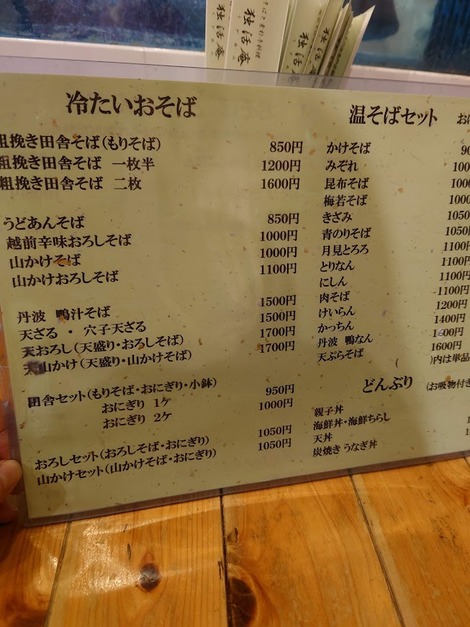 独活庵
独活庵
冷たいおそば
粗挽き田舎そば(もりそば) 850円
粗挽き田舎そば 一枚半 1200円
粗挽き田舎そば 二枚 1600円
うどあんそば 850円
越前辛味おろしそば 1000円
山かけそば 1000円
山かけおろしそば 1100円
丹波 鴨汁そば 1500円
天ざる・穴子天ざる 1500円
天おろし(天盛り・おろしそば) 1700円
天山かけ(天盛り・山かけそば) 1700円
田舎セット(もりそば・おにぎり・小鉢)
おにぎり 1ケ 950円
おにぎり 2ケ 1000円
おろしセット(おろしそば・おにぎり) 1050円
山かけセット(山かけそば・おにぎり) 1050円
温そばセット
かけそば
みぞれ
昆布そば
梅若そば
きざみ
青のりそば
月見とろろ
とりなん
にしん
肉そば
けいらん
かっちん
丹波 鴨なん
天ぷらそば
)内は単品
どんぶり (お吸物付き
親子丼
海鮮丼・海鮮ちらし
天丼
炭焼き うなぎ丼